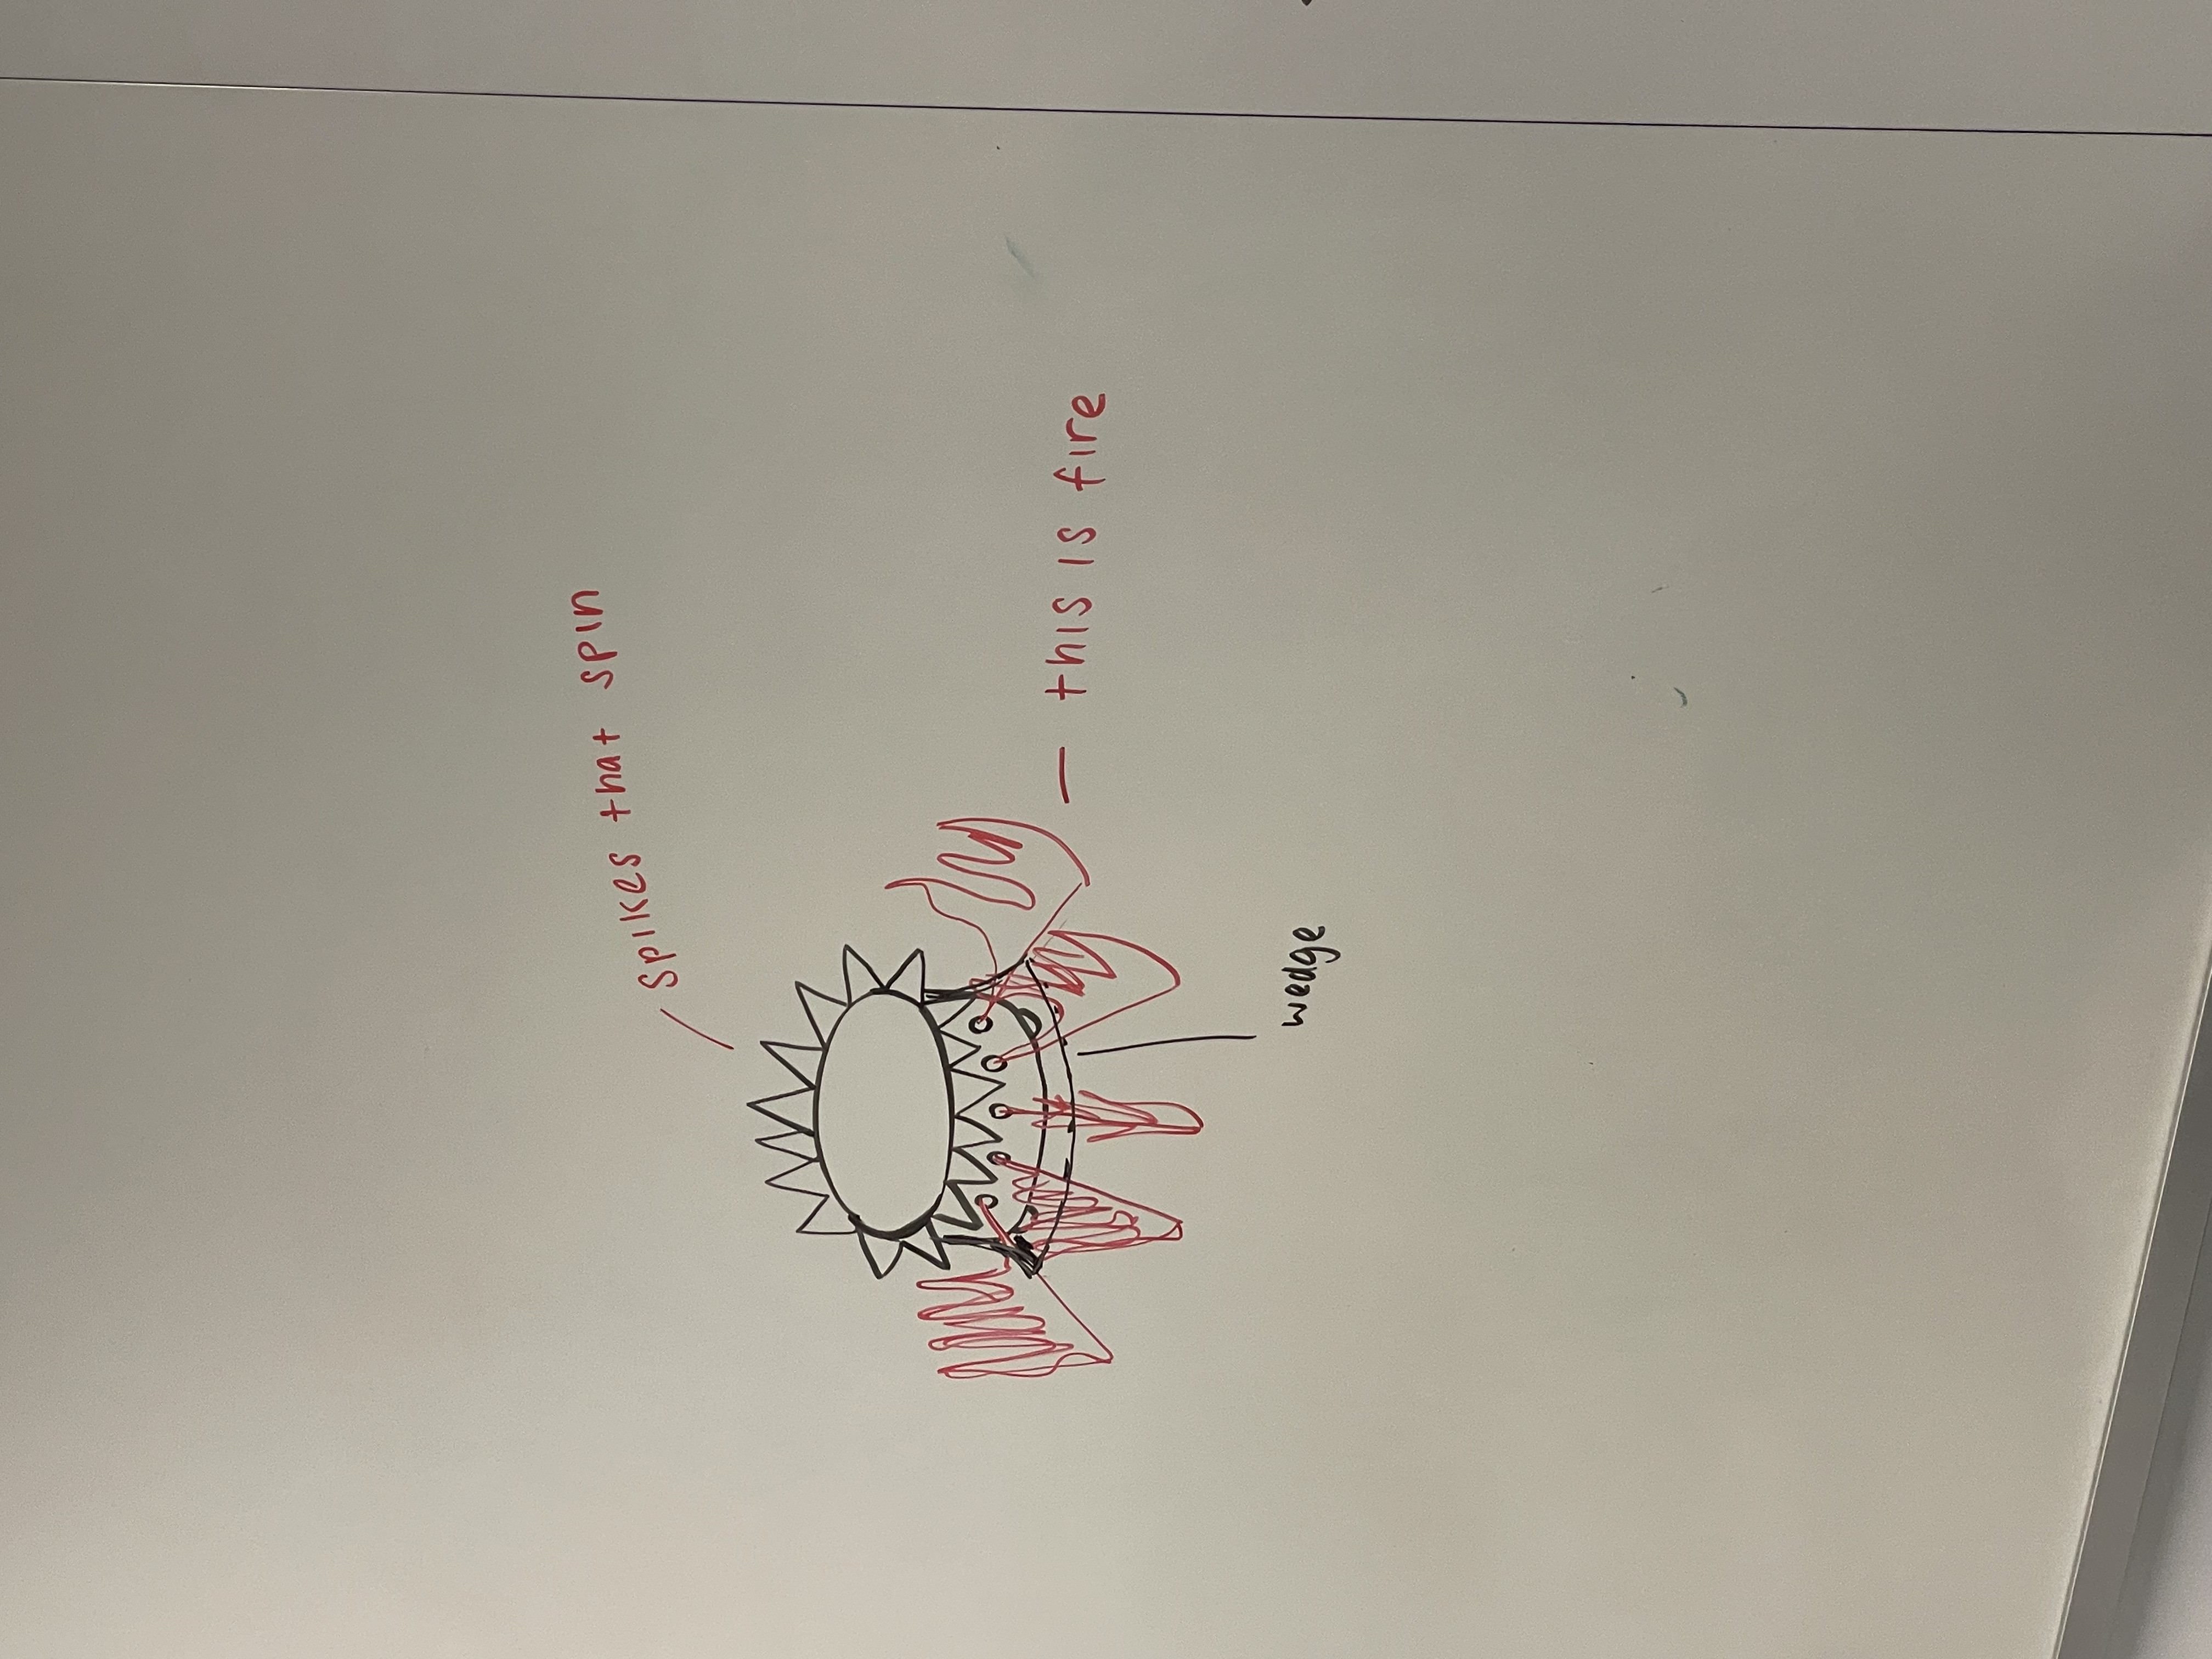 spikes that spin
this is fire
wedge